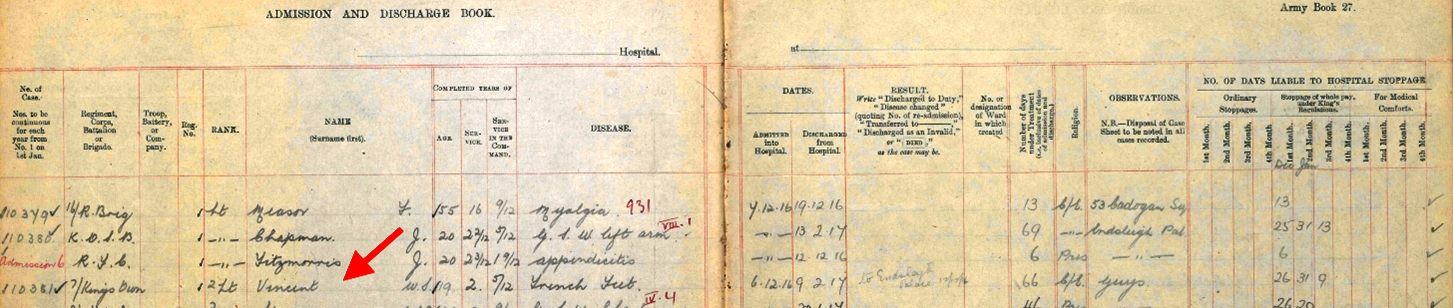 ADMISSION AND DISCHARGE BOOK.
Army Book 27.
Hospital.
at
No. of Case. Nos. to be continuous for each year from No. 1 on 1st Jan.
Regiment, Corps, Battalion or Brigade.
Troop, Battery, or Company.
Reg. No.
RANK.
NAME (Surname first).
COMPLETED YEARS OF
AGE.
SERVICE.
SERVICE IN THE COMMAND.
DISEASE.
DATES.
ADMITTED into Hospital.
DISCHARGED from Hospital.
RESULT.
Write "Discharged to Duty," "Disease changed" (quoting No. of re-admission), "Transferred to "Discharged as an Invalid," or "DIED," as the case may be.
No. or designation of Ward in which treated
Number of days under Treatment
Religion.
OBSERVATIONS.
N.B.—Disposal of Case Sheet to be noted in all cases recorded.
NO. OF DAYS LIABLE TO HOSPITAL STOPPAGE.
Ordinary Stoppages.
Stoppage of whole pay, under King's Regulations.
For Medical Comforts.
1st Month. 2nd Month. 3rd Month. 4th Month. 1st Month. 2nd Month. 3rd Month. 4th Month. 1st Month. 2nd Month. 3rd Month. 4th Month.
Dec Jan
110379 16/R. Brig 1 Lt Measor F. 35 16 9/12 Myalgia 931 7.12.16 19.12.16 13 C/E. 53 Cadogan Sq 13
110380 K.O.S.B. 1 -"- Chapman J. 20 2 3/12 5/12 G.S.W. left arm VIII.1 -"- 13 2 17 69 -"- 25 31 13
Admission 6 R.F.C. 1 -"- Fitzmorris J. 20 appendicitis -"- 12.12.16 6 Pres -"- 6
110381 7/Kings Own 1 2Lt Vincent W.S. 19 2. 5/12 Trench Feet. 6.12.16 9 2.17 66 C/E. Guys 26 31 9
IX.4